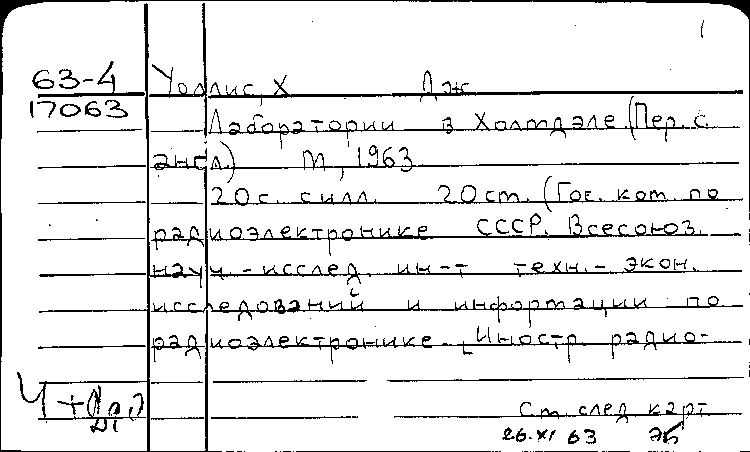 1
63-4 Уоллис, Х Дж
17063
Лаборатории в Холмдэле (Пер. с
англ.) М, 1963
20с. с илл. 20 см. (Гос. ком. по
радиоэлектронике СССР. Всесоюз.
науч.-исслед. ин-т техн.-экон.
исследований и информации по
радиоэлектронике. Иностр. радио-
Ст. след карт
26.XI 63